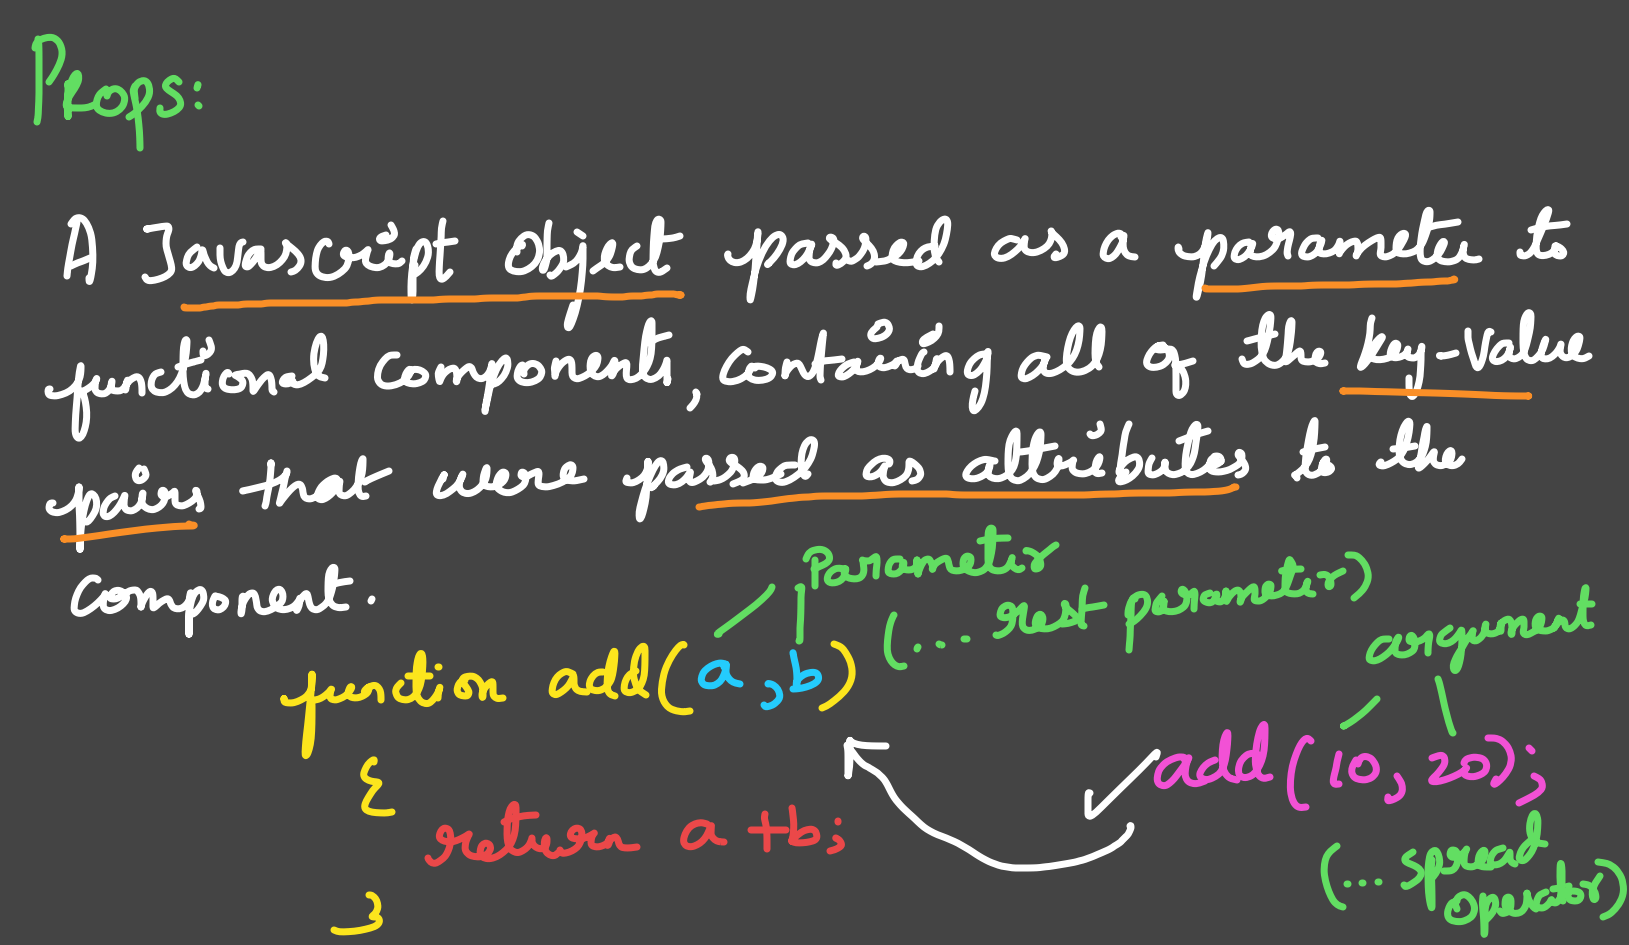 Props:
A Javascript Object passed as a parameter to
functional components, containing all of the key-value
pairs that were passed as attributes to the
component.
Parameter
(... rest parameter)
argument
function add(a,b)
add(10, 20);
{
return a+b;
(... spread
operator)
}